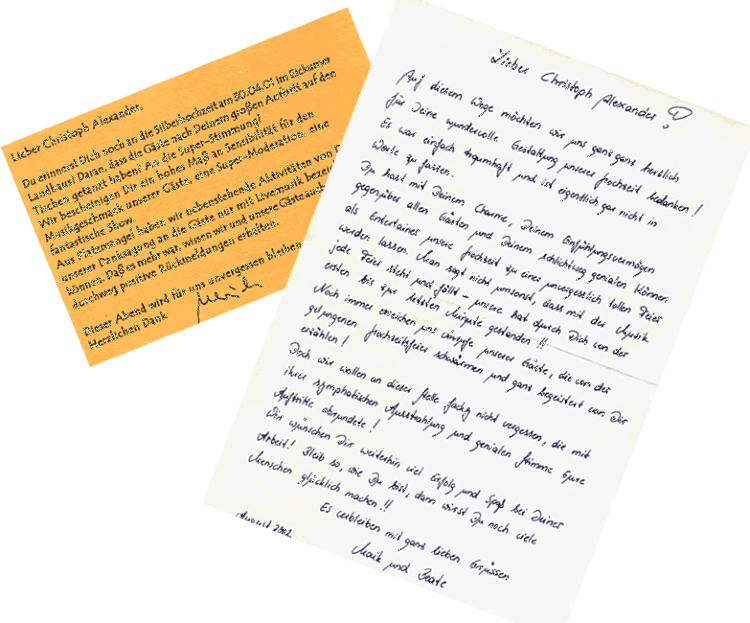 Lieber Christoph Alexander,
Du erinnerst Dich noch an die Silberhochzeit am 30.04.01 im Sickumer
Landhaus? Daran, dass die Gäste nach Deinem großen Auftritt auf den
Tischen getanzt haben? An die Super-Stimmung?
Wir bescheinigen Dir ein hohes Maß an Sensibilität für den
Musikgeschmack unserer Gäste, eine Super-Moderation, eine
fantastische Show.
Aus Platzmangel haben wir nebenstehende Aktivitäten von
unserer Danksagung an die Gäste nur mit Livemusik
können. Daß es mehr war, wissen wir und unsere Gäste auch
durchweg positive Rückmeldungen erhalten.
Dieser Abend wird für uns unvergessen bleiben
Herzlichen Dank
Lieber Christoph Alexander,
Auf diesem Wege möchten wir uns ganz ganz herzlich
für Deine wundervolle Gestaltung unserer Hochzeit bedanken!
Es war einfach traumhaft und ist eigentlich gar nicht in
Worte zu fassen.
Du hast mit Deinem Charme, Deinem Einfühlungsvermögen
gegenüber allen Gästen und Deinem schlichtweg genialen Können
als Entertainer unsere Hochzeit zu einer unvergesslich tollen Feier
werden lassen. Man sagt nicht umsonst, dass mit der Musik
jede Feier steht und fällt - unsere hat durch Dich von der
ersten bis zur letzten Minute gestanden!!
Noch immer erreichen uns Anrufe unserer Gäste, die von der
gelungenen Hochzeitsfeier schwärmen und ganz begeistert von Dir
erzählen!
Doch wir wollen an dieser Stelle nicht vergessen, die mit
ihrer symphatischen Ausstrahlung und genialen Stimme Eure
Auftritte abrundete!
Wir wünschen Dir weiterhin viel Erfolg und Spaß bei Deiner
Arbeit! Bleib so, wie Du bist, dann wirst Du noch viele
Menschen glücklich machen!!
Es verbleiben mit ganz lieben Grüssen
August 2002
Maik und Beate